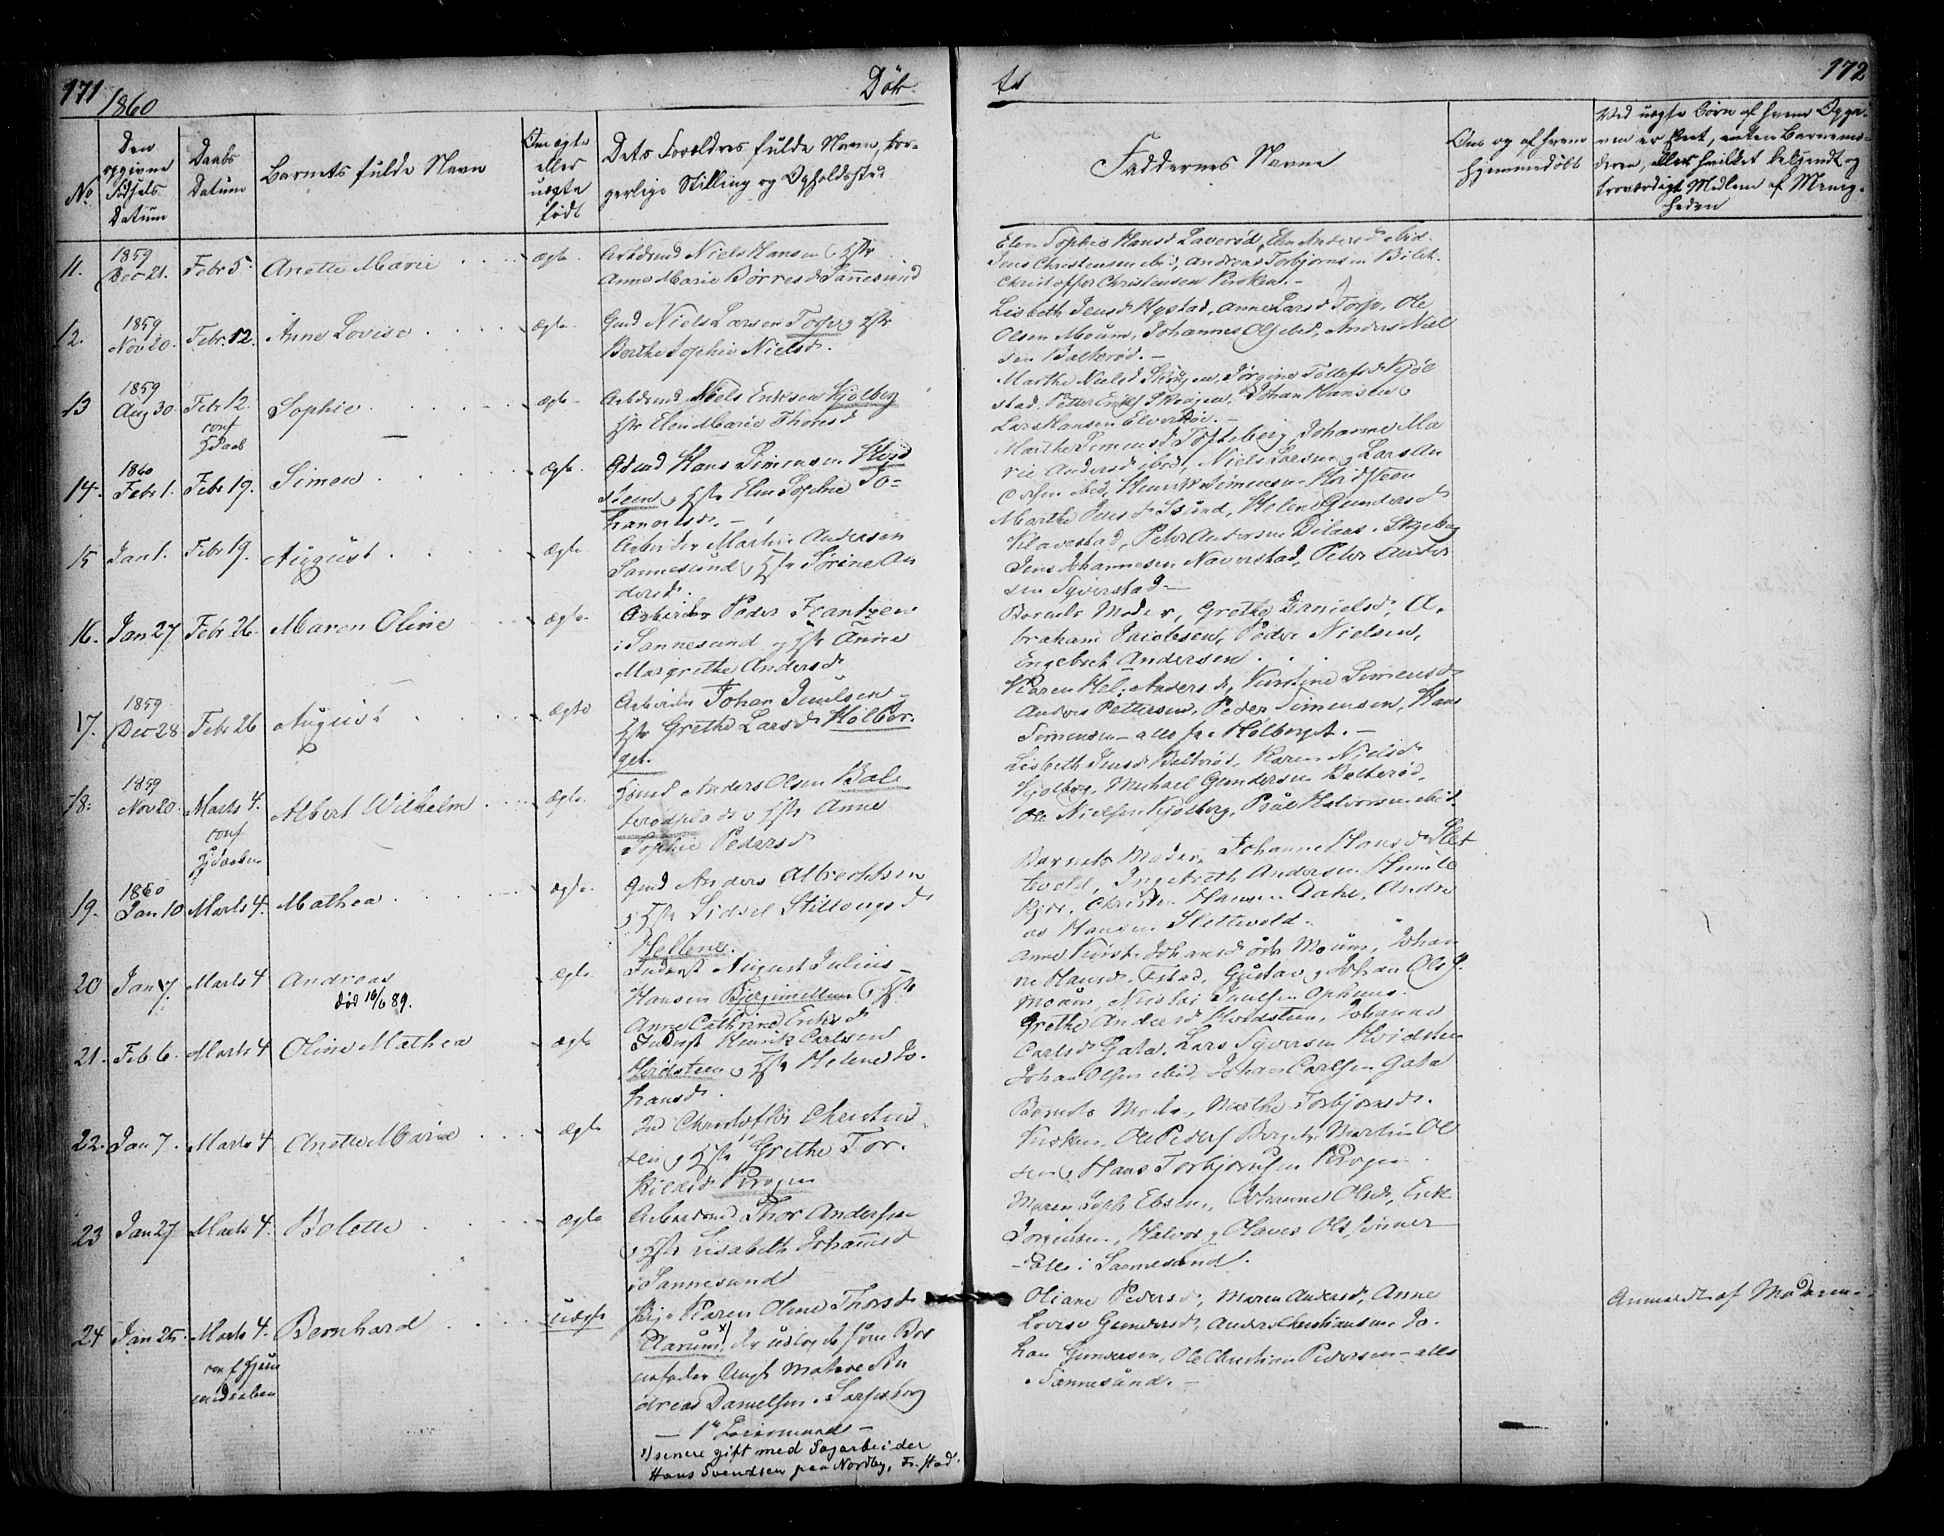 171
1860
Døb
te
172
No
Den opgivne Fødsels Datum
Daabs Datum
Barnets fulde Navn
Om ægte eller uægte født
Dets Forældres fulde Navn, borgerlige Stilling og Opholdssted
Faddernes Navne
Om og af hvem hjemmedøbt
Ved uægte Børn af hvem Opga-
ven er skeet, enten Barnemo-
deren, eller hvilket bekjendt og
troværdigt Medlem af Menig-
heden
11. 1859 Dec 21. Febr 5. Anette Marie ægte
Arbdmd Niels Hansen & Hstr
Anne Marie Børresd Sannesund
Elen Sophie Hansd Laverød, Elen Andersd ibid.
Jens Christensen ibid, Andreas Torbjørnsen
Christoffer Christensen
12. 1859 Nov 20. Febr. 12. Anne Lovise ægte
Gmd Niels Larsen Torp & Hstr
Berthe Sophie Nielsd.
Lisbeth Jensd Hystad, Anne Larsd Torp, Ole
Olsen Moum, Johannes Ols ibid, Anders Niel
sen Balterød.
13 1859 Aug 30 Febr 12. conf Hdaab Sophie ægte
Arbdmd Niels Ericksen Kjølberg
Hstr Elen Marie Thorsd
Marthe Nielsd Skogen, Jørgine Tollefsd Kjøl
stad, Peter Skogen, Johan Hansen
Lars Hansen
14. 1860 Febr 1. Febr 19. Simon ægte
Hans Simensen Hvid
steen & Hstr Elen Sophie Jo=
hannesd.
Marthe Simensd Tofteberg, Johanne Ma
rie Andersd ibid, Niels Larsen & Lars An
ibid, Henrik Simensen Hvidsteen
15 Jan 1. Febr 19. August ægte
Arbeider Martin Andersen
Sannesund & Hstr Sørine An
dersd.
Marthe Jensd Isund, Helene Gundersd
Klavestad, Peter Andersen Skjeberg
Jens Johannesen Naverstad, Peter Ander
sen Syverstad
16. Jan 27 Febr 26. Maren Oline ægte
Arbeider Peder Frantzen
i Sannesund og Hstr Anne
Margrethe Andersd
Barnets Moder, Grethe Danielsd, A.
braham Jacobsen, Peder Nielsen,
Engebret Andersen.
17. 1859 Dec 28 Febr 26 August ægte
Arbeider Johan Juulsen &
Hstr Grethe Larsd Holber-
get.
Karen Hel. Andersd, Kirstine Simensd
Anders Pettersen, Peder Simensen, Hans
Simensen - alle fra Holberget.
18. 1859 Nov 20. Marts 4. conf Hjdaaben Albert Wilhelm ægte
Anders Olsen Bal
terødplads & Hstr Anne
Sophie Pedersd
Lisbeth Jensd Balterød, Karen Nielsd
Kjølberg, Michael Gundersen Balterød,
Ole Nielsen Kjølberg, Poul Halvorsen ibid
19. 1860 Jan 10 Marts 4. Mathea ægte
Gmd Anders Albrechtsen
& Hstr Sidsel Stillougsd
Hellene.
Barnets Moder, Johanne Hansd Slet
tevold, Ingebreth Andersen Humle
kjær, Christen Hansen Dahl, Andre
as Hansen Slettevold.
20 Jan 7. Marts 4 Andreas ægte
død 16/6 89.
Inderst August Julius
Hansen Bjørgimellem & Hstr
Anne Cathrine Ericksd
Anne Kirst. Johansd Moum, Johan
ne Hansd Istad, Gustav & Johan Ols
Moum, Nicolai Juulsen Ophuus.
21. Feb 6. Marts 4 Oline Mathea ægte
Inderst Henrik Carlsen
Hvidsteen & Hstr Helene Jo.
hansd.
Grethe Andersd Hvidsteen, Johanne
Carlsd Gata, Lars Syversen Hvidsteen
Johan Olsen ibid, Johan Carlsen Gata
22. Jan 7. Marts 4 Anette Marie ægte
Ind Christoffer Christen
sen & Hstr Grethe Tor.
kildsd Krogen
Barnets Moder, Marthe Torbjørnsd.
Ole Peders Berget, Martin Ol
sen, Hans Torbjørnsen Krogen
23 Jan 27 Marts 4. Bolette ægte
Arbeidsmd Thor Andersen
& Hstr Lisabeth Johannesd
i Sannesund
Maren Soph Ebsen, Johanne Olsd, Erik
Jørgensen, Halvor & Olaves Olssønner
- alle i Sannesund.
24 Jan 25. Marts 4. conf Hjem medaaben Bernhard uægte
Pige Karen Oline Thorsd
Alarum x) der udlagde som Bar
nefader Ungk Matros An
dreas Danielsen, Sarpsborg
- 1st Leiermaal -
x) senere gift med Sagarbeider
Hans Svendsen paa Nordby, Fr.stad.
Oliane Pedersd, Maren Andersd, Anne
Lovise Gundersd, Anders Christiansen, Jo.
han Gundersen, Ole Christian Pedersen - alle
i Sannesund.
Anmeldt af Moderen